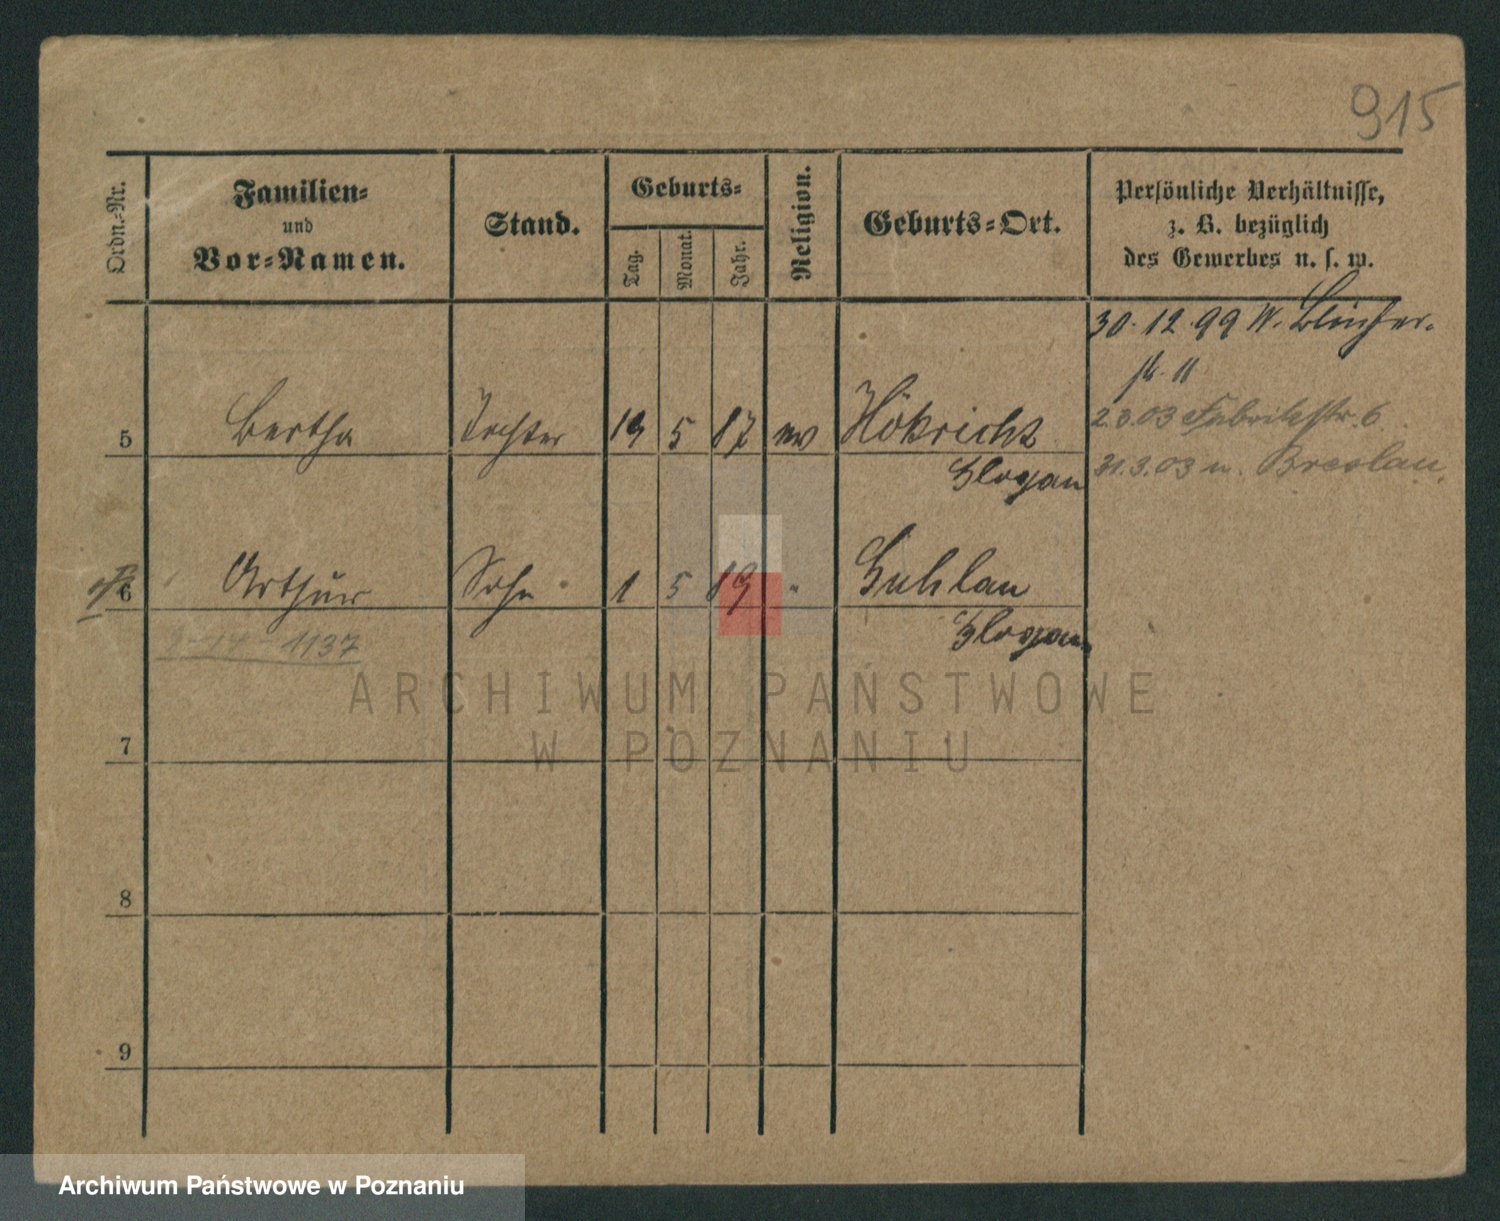 915
Ordn.-Nr.
Familien-
und
Vor-Namen.
Stand.
Geburts-
Tag.
Monat.
Jahr.
Religion.
Geburts-Ort.
Persönliche Verhältnisse,
z. B. bezüglich
des Gewerbes u. s. w.
30. 12. 99 W. Blücher-
str. 11
5 Bertha Tochter 19 5 87 ev Hökricht
Glogau
2.3.03 Fabrikstr. 6
31.3.03 n. Breslau.
6 Arthur Sohn 1 5 89 " Guhlau
Glogau
1137
7
8
9
ARCHIWUM PAŃSTWOWE
W POZNANIU
Archiwum Państwowe w Poznaniu